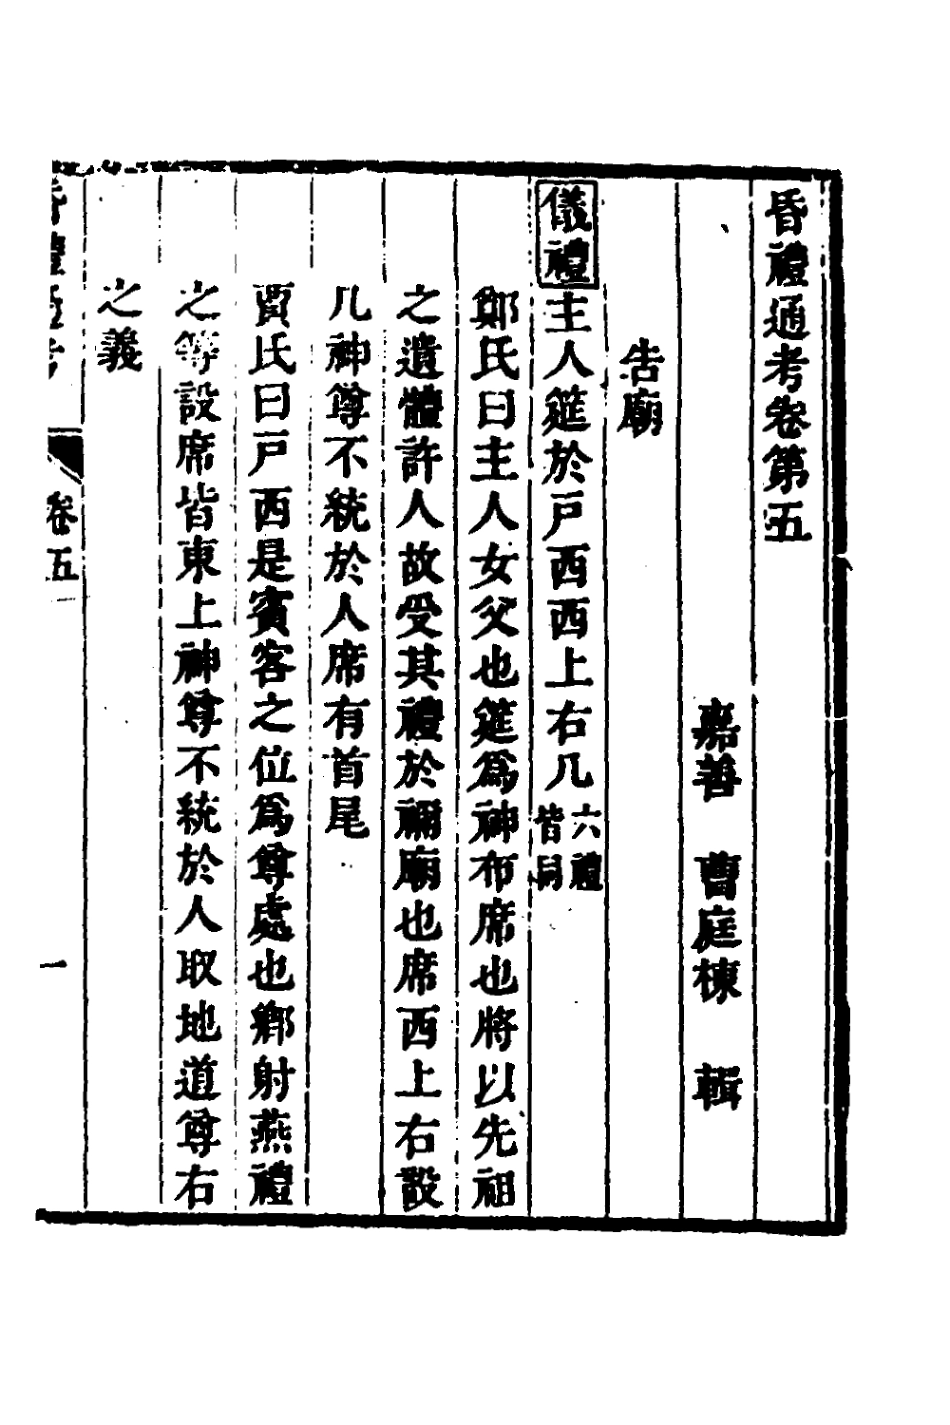 昏禮通考卷第五
嘉善　曹庭棟　輯
告廟
儀禮主人筵於戸西西上右几六禮皆同
鄭氏曰主人女父也筵爲神布席也將以先祖
之遺體許人故受其禮於禰廟也席西上右設
几神尊不統於人席有首尾
賈氏曰戸西是賓客之位爲尊處也鄉射燕禮
之等設席皆東上神尊不統於人取地道尊右
之義
卷五
一